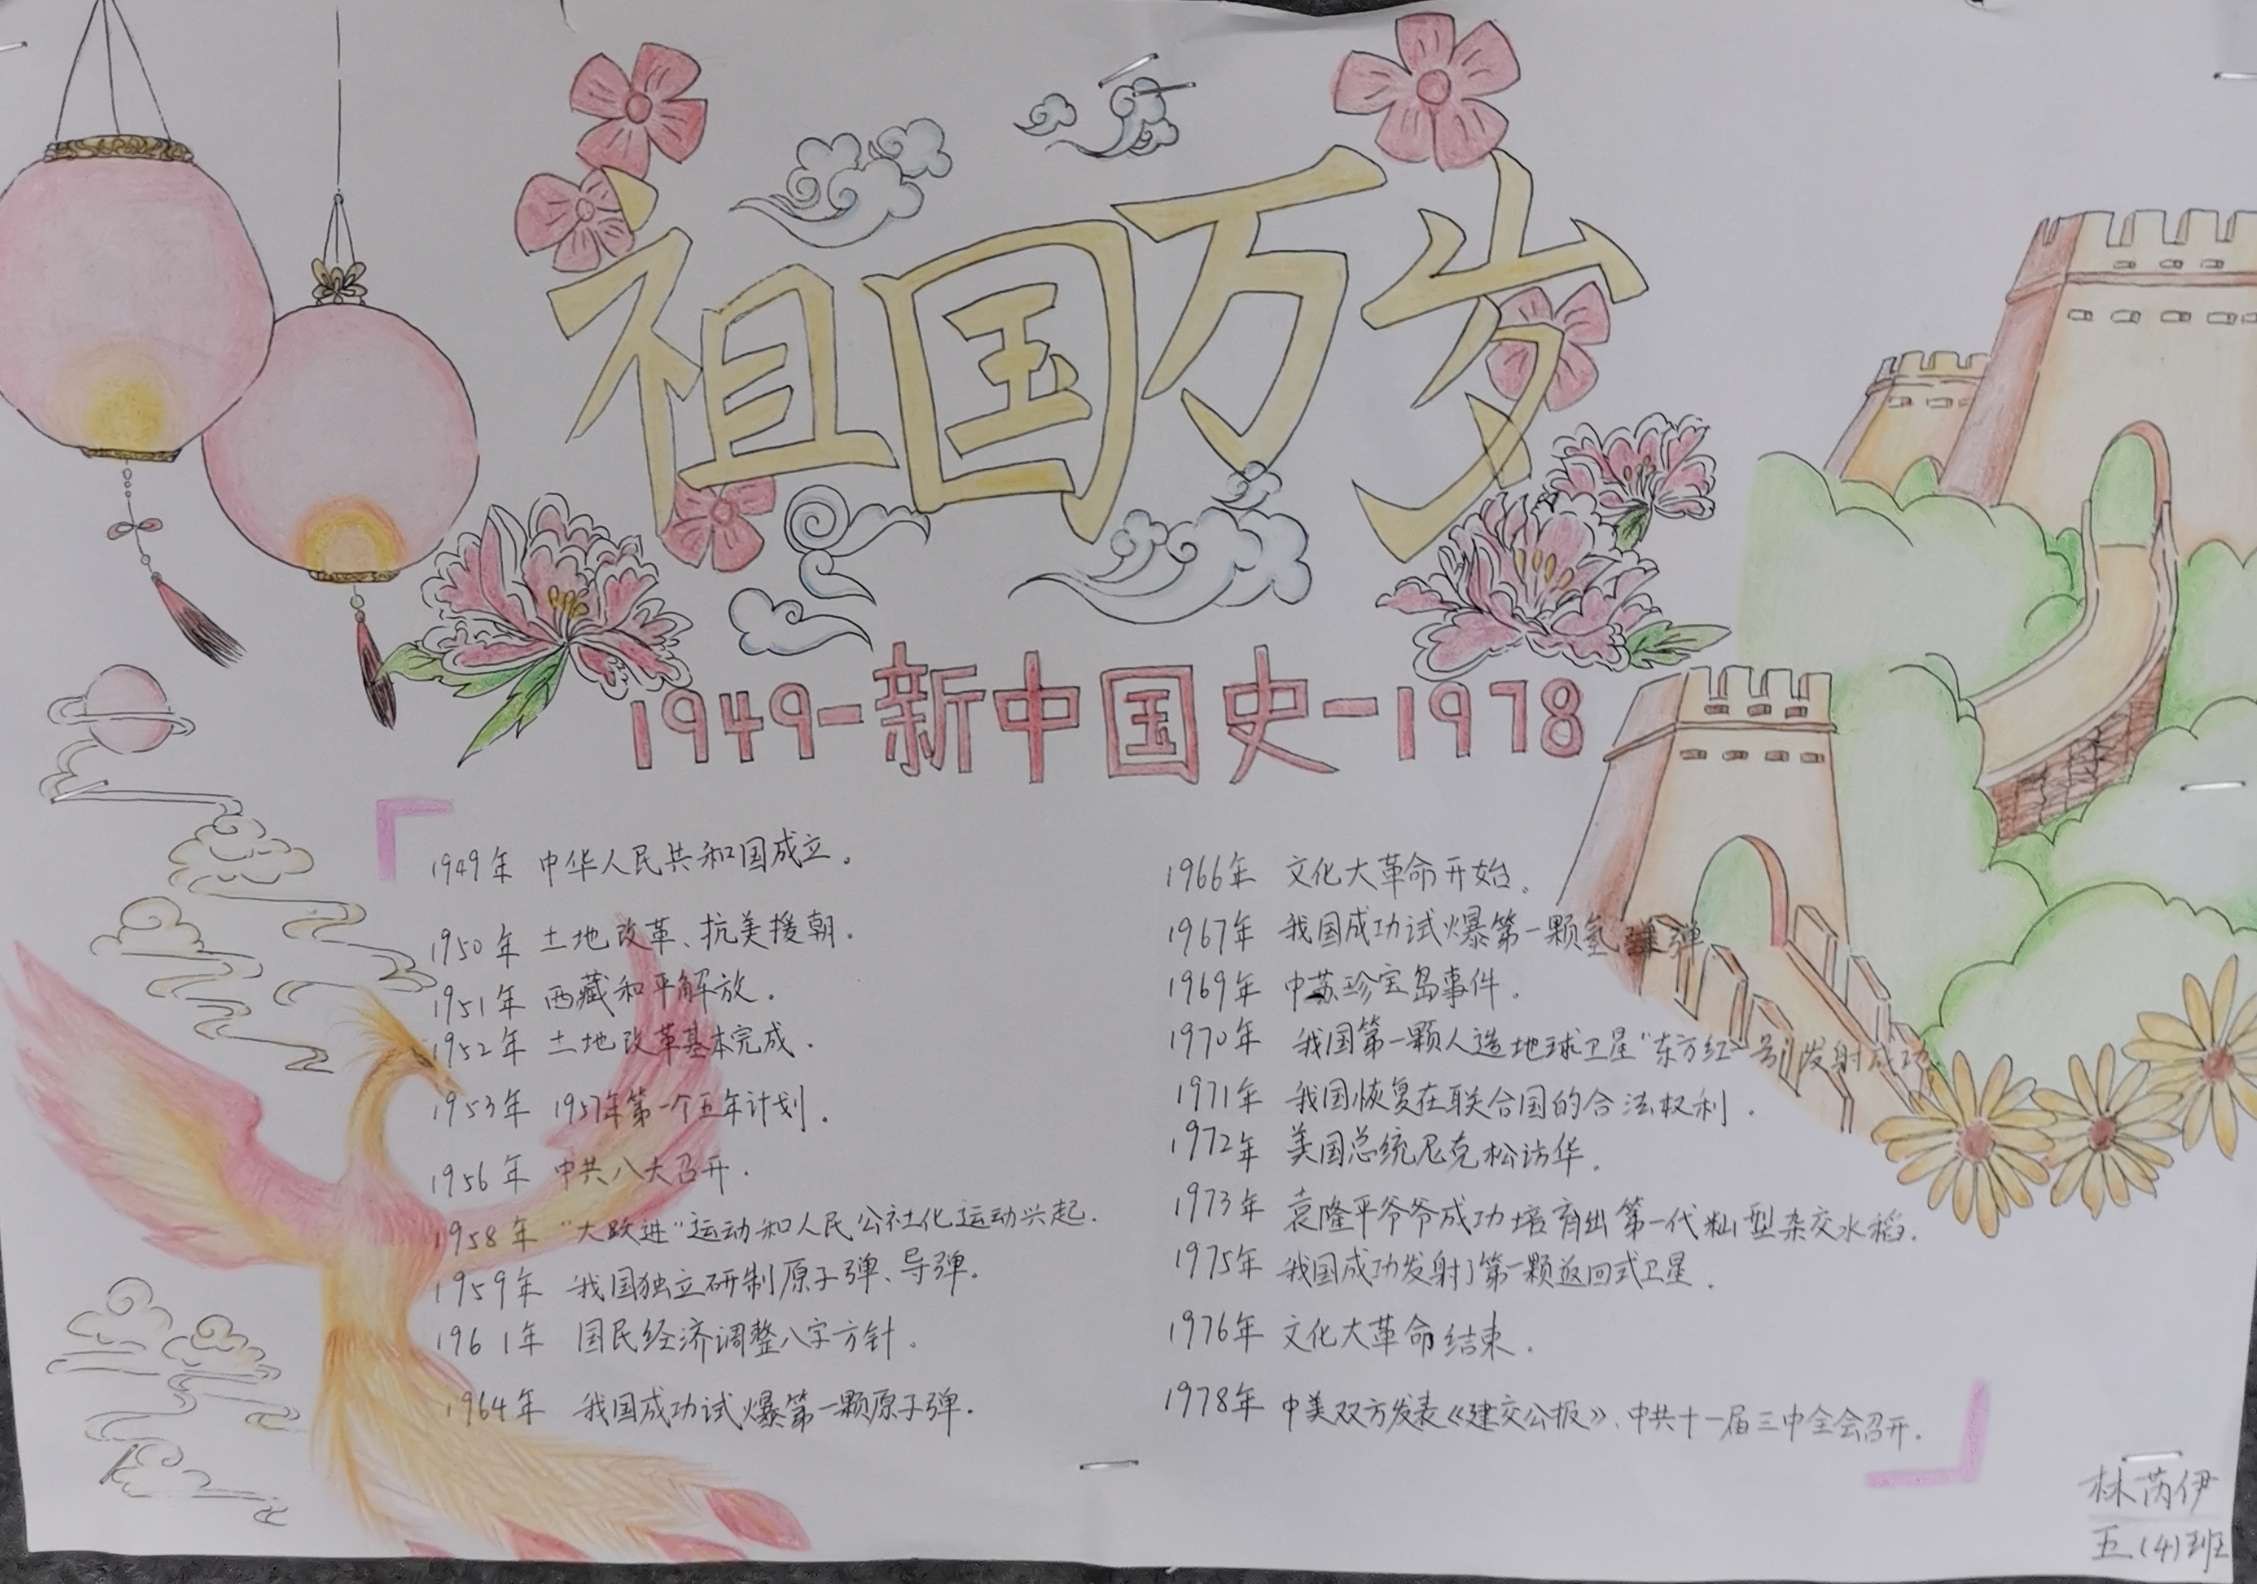 祖国万岁
1949-新中国史-1978
1949年 中华人民共和国成立。
1950年 土地改革、抗美援朝.
1951年 西藏和平解放.
1952年 土地改革基本完成.
1953年 1957年第一个五年计划.
1956年 中共八大召开.
1958年 "大跃进"运动和人民公社化运动兴起.
1959年 我国独立研制原子弹、导弹.
1961年 国民经济调整八字方针.
1964年 我国成功试爆第一颗原子弹.
1966年 文化大革命开始。
1967年 我国成功试爆第一颗氢弹
1969年 中苏珍宝岛事件.
1970年 我国第一颗人造地球卫星"东方红一号"发射成功.
1971年 我国恢复在联合国的合法权利.
1972年 美国总统尼克松访华.
1973年 袁隆平爷爷成功培育出第一代籼型杂交水稻.
1975年 我国成功发射了第一颗返回式卫星.
1976年 文化大革命结束.
1978年 中美双方发表《建交公报》、中共十一届三中全会召开.
林芮伊
五(4)班